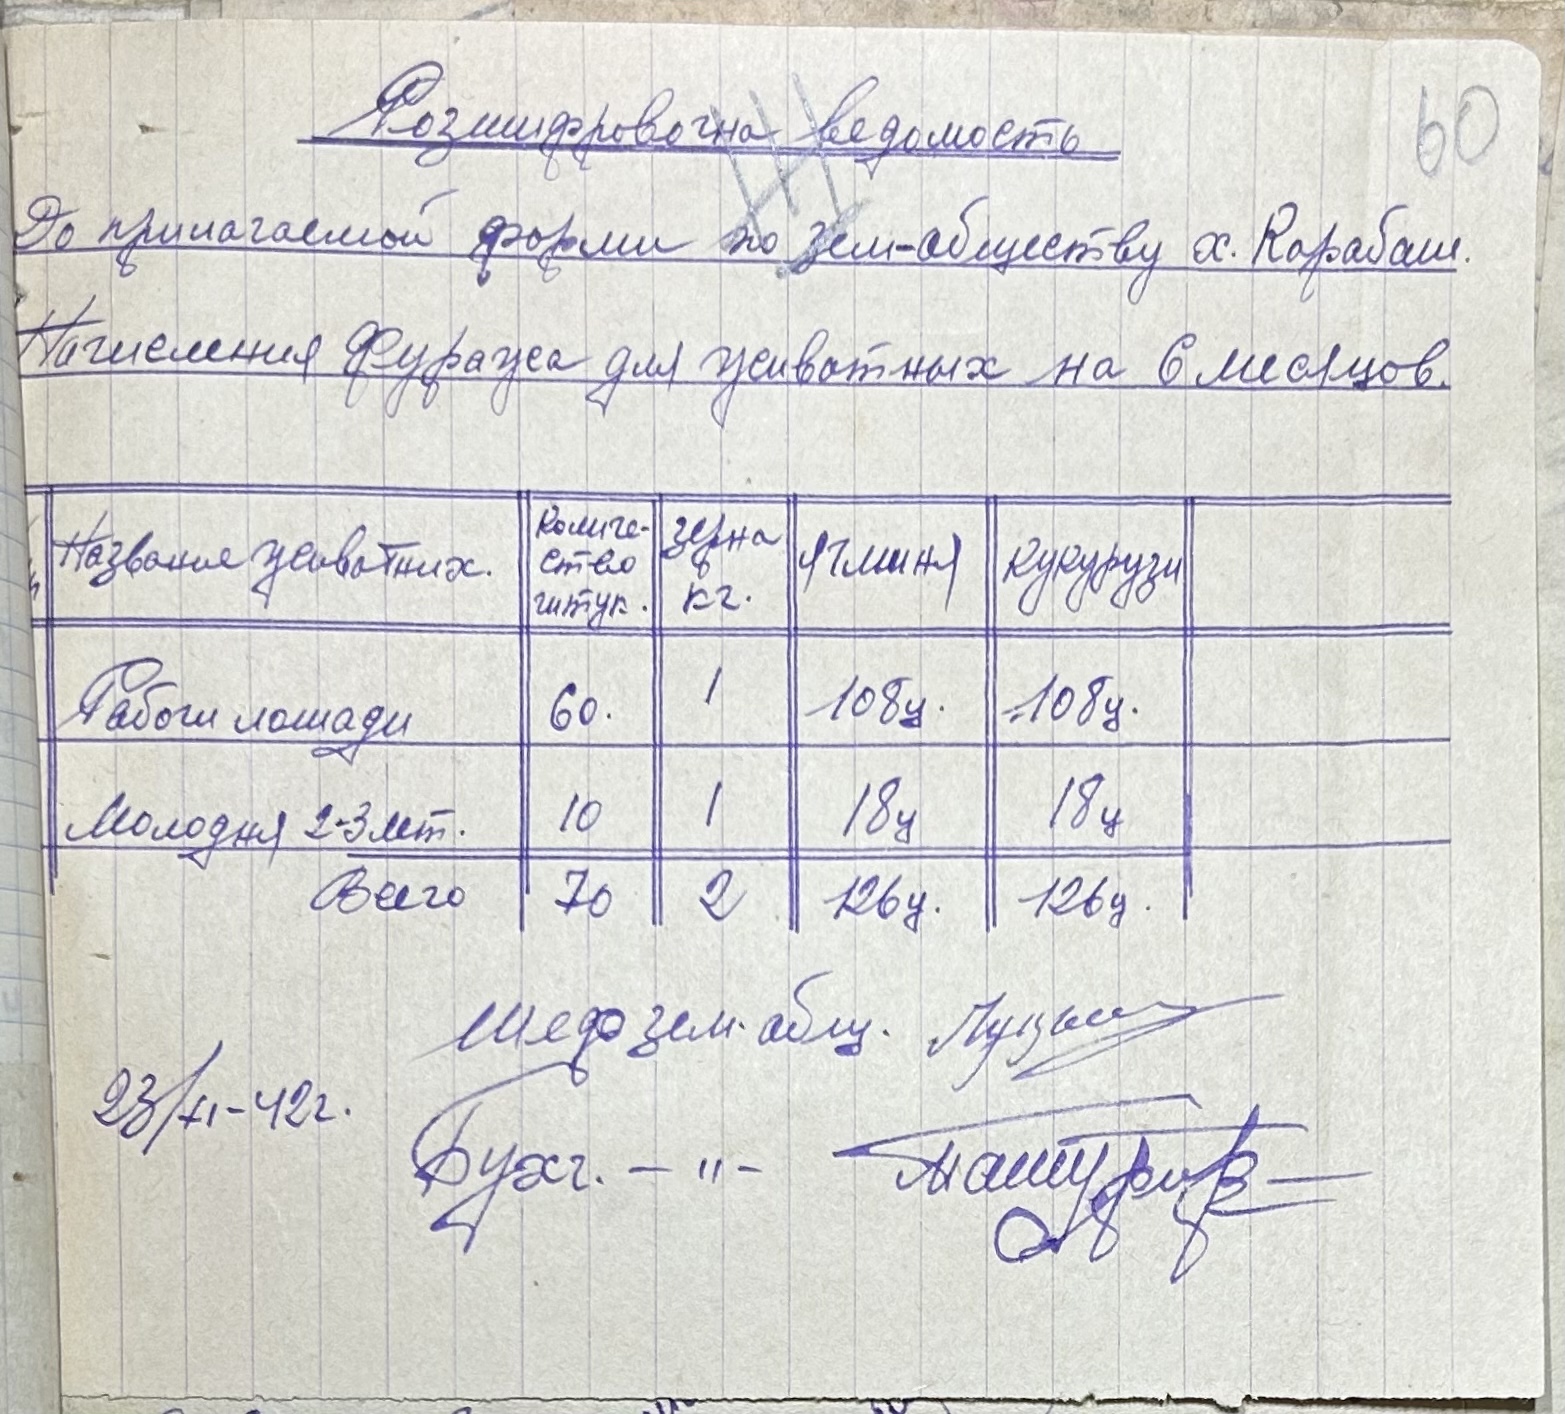 60
Розшифровочна ведомость
До прилагаемой форми по зем-обществу х. Карабаш.
Начисления Фуража для животных на 6 месяцов.
Название животних. Количе-ство штук. зерна кг. Ячменя Кукурузи
Рабочи лошади 60. 1 108ц. 108ц.
Молодня 2-3 лет. 10 1 18ц 18ц
Всего 70 2 126ц. 126ц.
Шеф зем. общ.
23/XI-42г.
Бухг. — " —